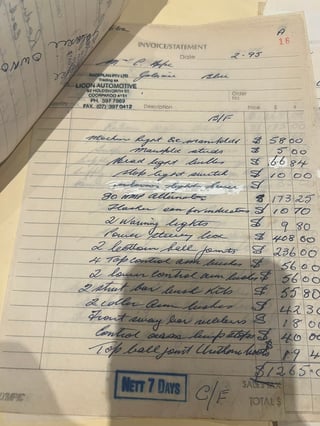 A
16
INVOICE/STATEMENT
Date 2-95
Mr C Hope
Galaxie Blue
Trading as
LICON AUTOMOTIVE
COORPAROO 4151
PH. 397 7969
FAX. (07) 397 0412
Order No
Description Price $
B/F
Machine Right & manifolds $ 58 00
Manifold studs $ 5 00
Head light bulbs $ 66 84
Stop light switch $ 10 00
90 amp Alternator $ 173.25
Flasher can for indicators $ 10 70
2 Warning lights $ 9 80
Power steering box $ 408 00
2 bottom ball joints $ 236 00
4 Top control arm bushes $ 56 00
2 lower control arm bushes $ 56 00
2 strut bar bush kits $ 55 80
2 arm bushes $ 42 30
Front sway bar rubbers $ 18 00
Control arm bump stops $ 40 00
Top ball joint $ 19 4
NETT 7 DAYS
C/F
SALES TAX
$1265.0
TOTAL $
OLYMPIC